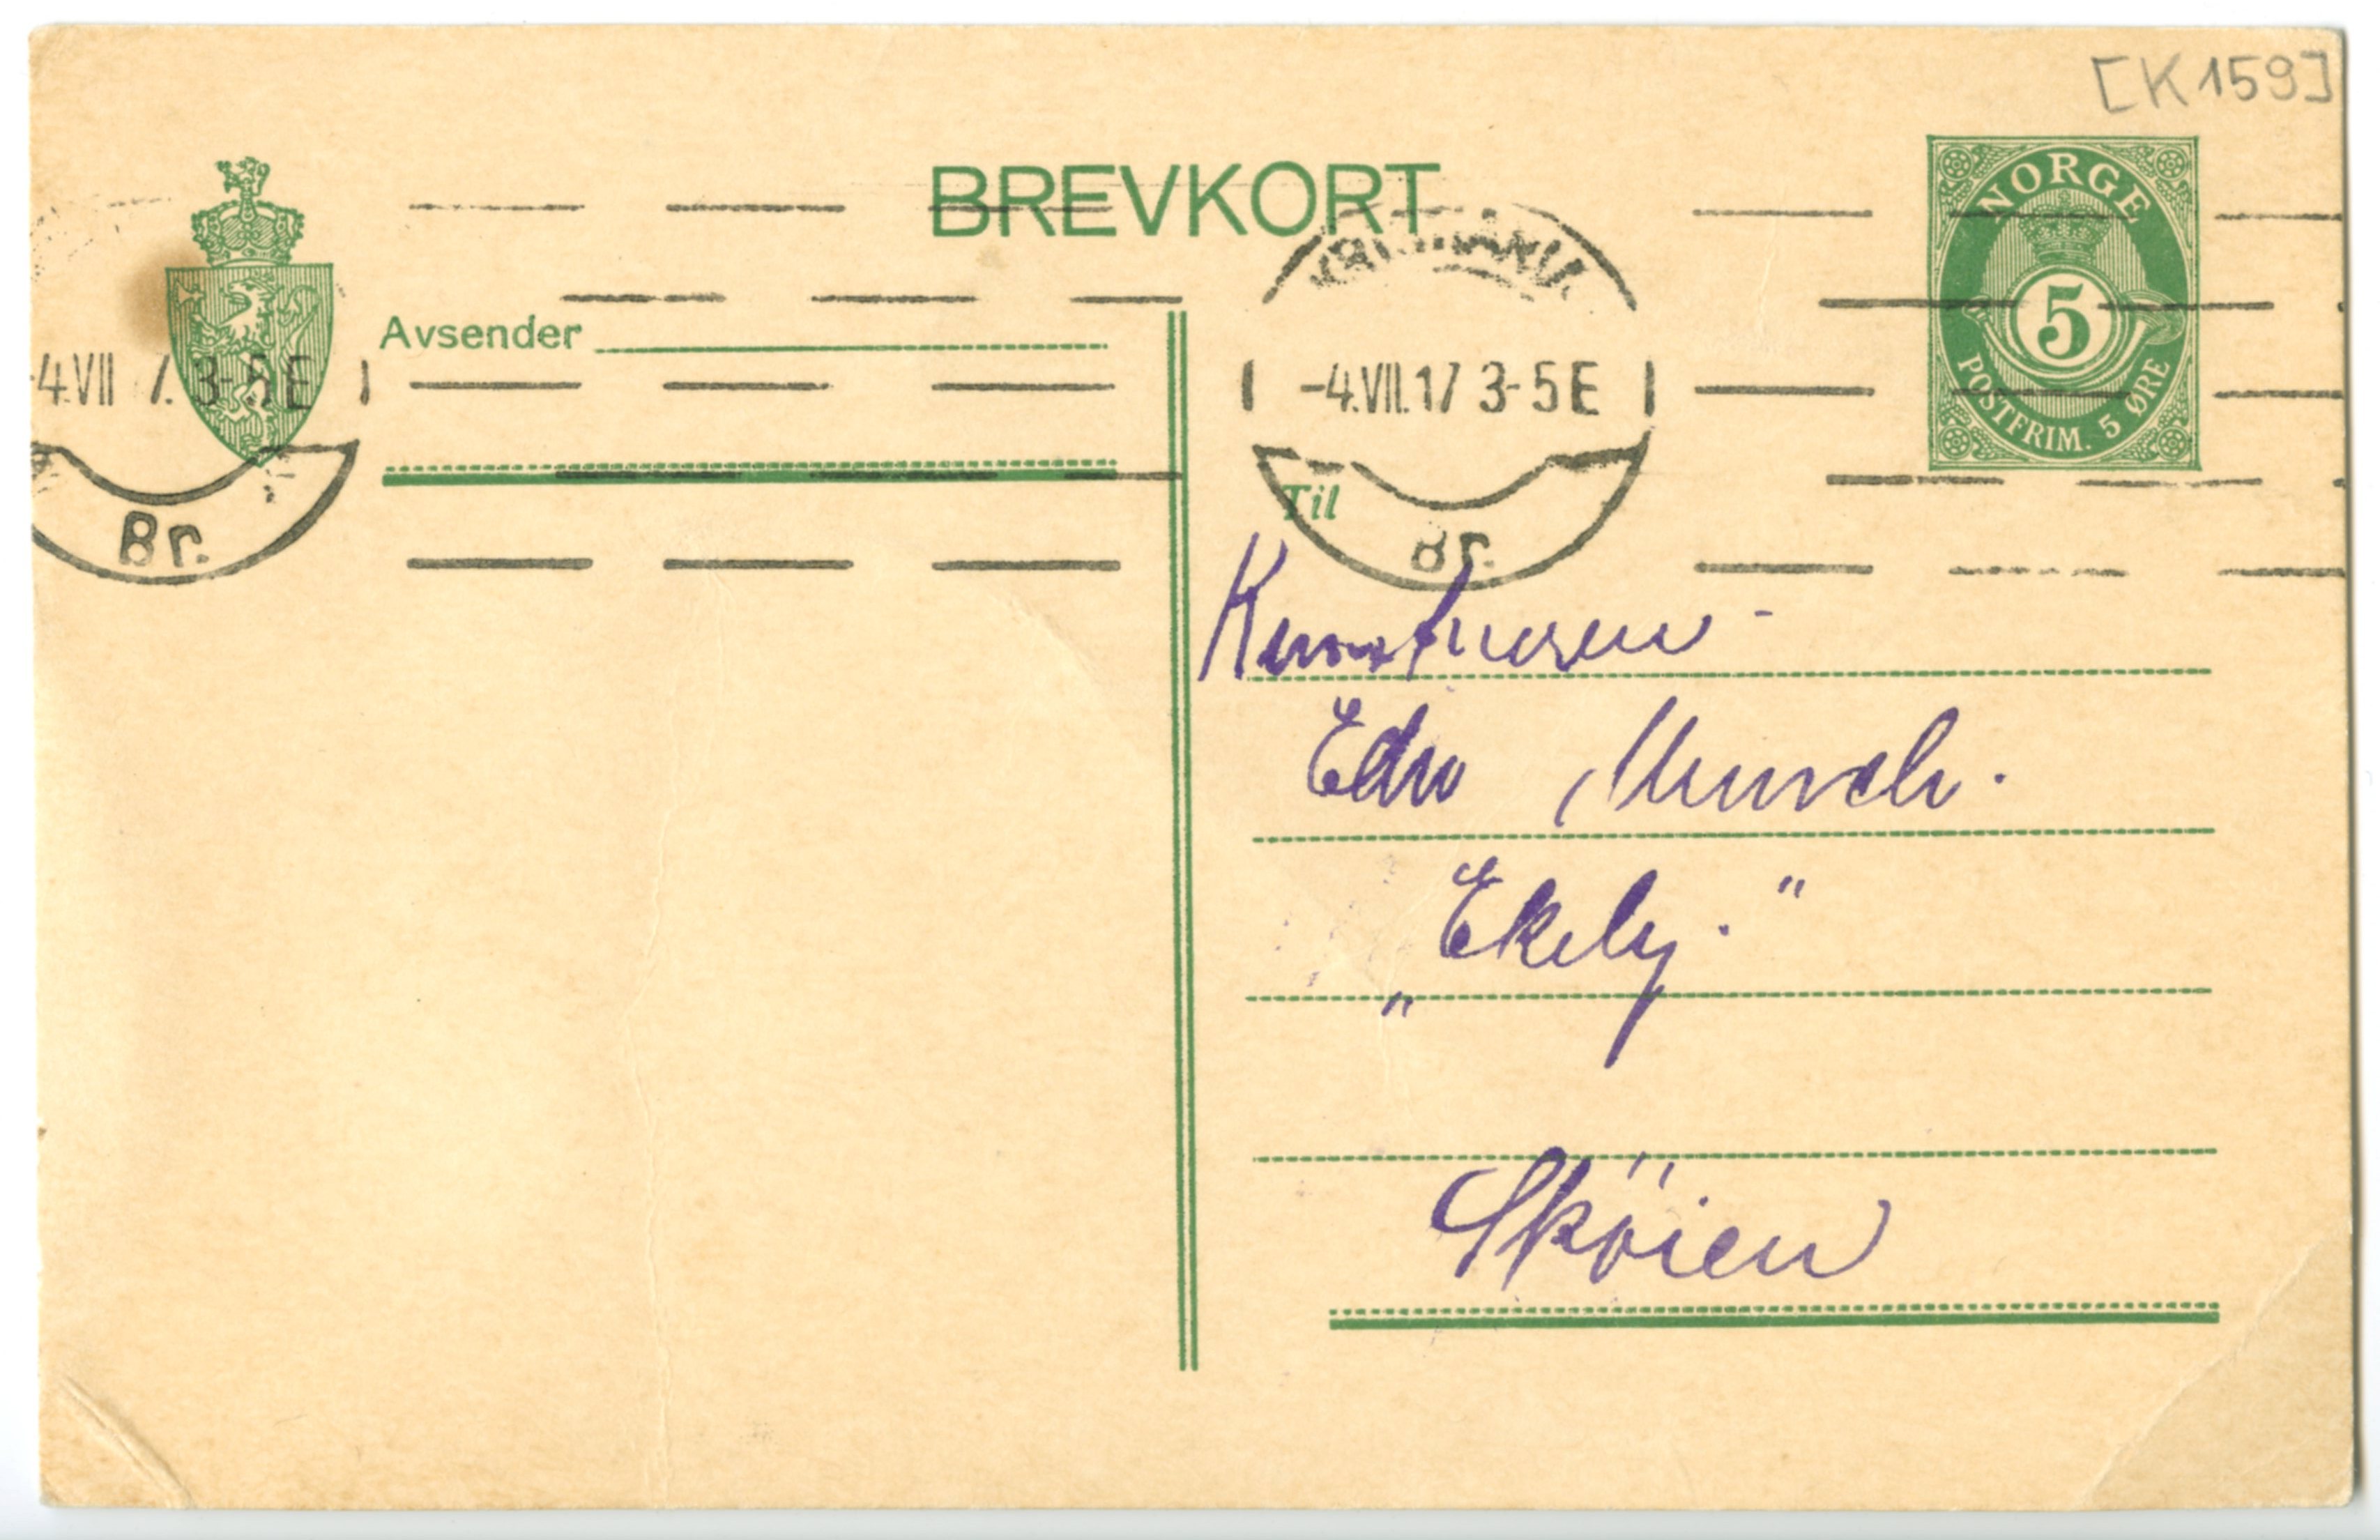 [K 159]
BREVKORT
NORGE
5
POSTFRIM. 5 ØRE
Avsender
-4.VII 7. 3-5E
Br.
KRISTIANIA
-4.VII.17 3-5E
Br.
Til
Kunstneren -
Edv Munch.
„Ekely."
Skøien